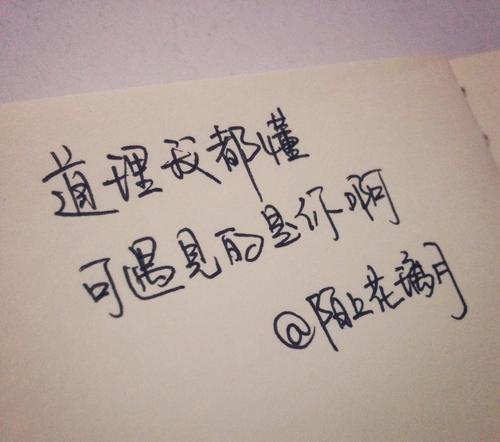 道理我都懂
可遇见的是你啊
@陌上花璃月